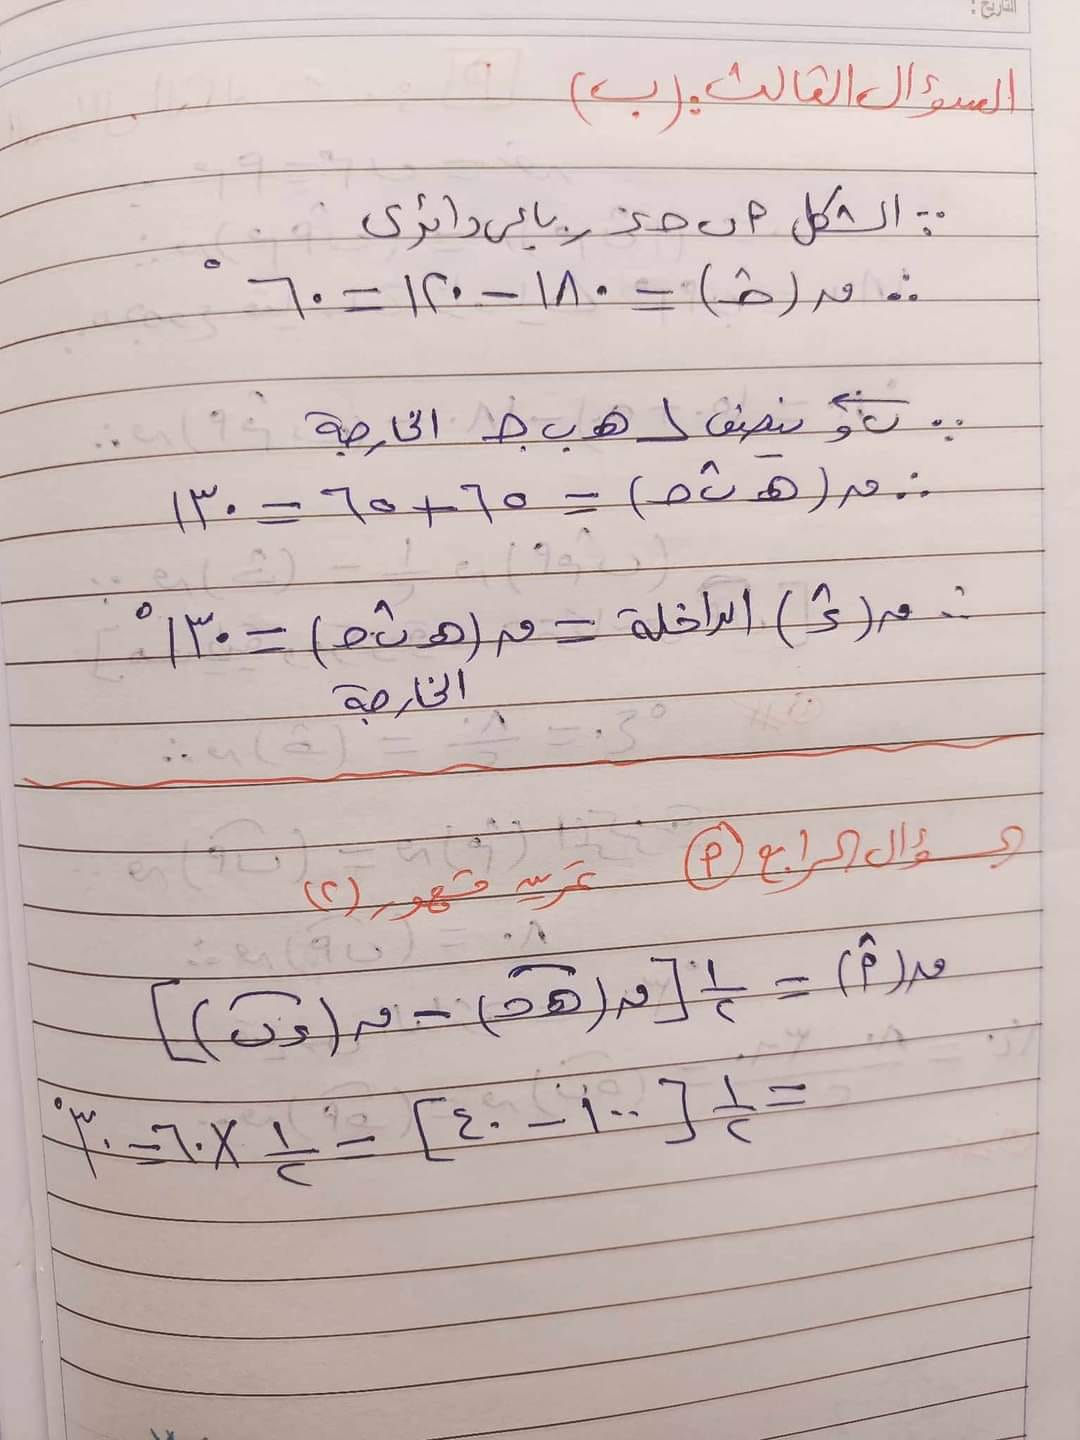 التاريخ:
السؤال الثالث: (ب)
∵ الشكل م ب حـ ء رباعى دائرى
∴ ق(حـ̂) = ١٨٠ − ١٢٠ = ٦٠°
∵ ب و ينصف ∠ هـ ب حـ الخارجة
∴ ق(هـ ب̂ حـ) = ٦٥ + ٦٥ = ١٣٠
∴ ق(ء̂) الداخلة = ق(هـ ب̂ حـ) = ١٣٠°
الخارجة
السؤال الرابع (م) تمرين مشهور (٢)
ق(م̂) = ١/٢ [ق(هـ حـ) − ق(ء ب)]
= ١/٢ [١٠٠ − ٤٠] = ١/٢ × ٦٠ = ٣٠°